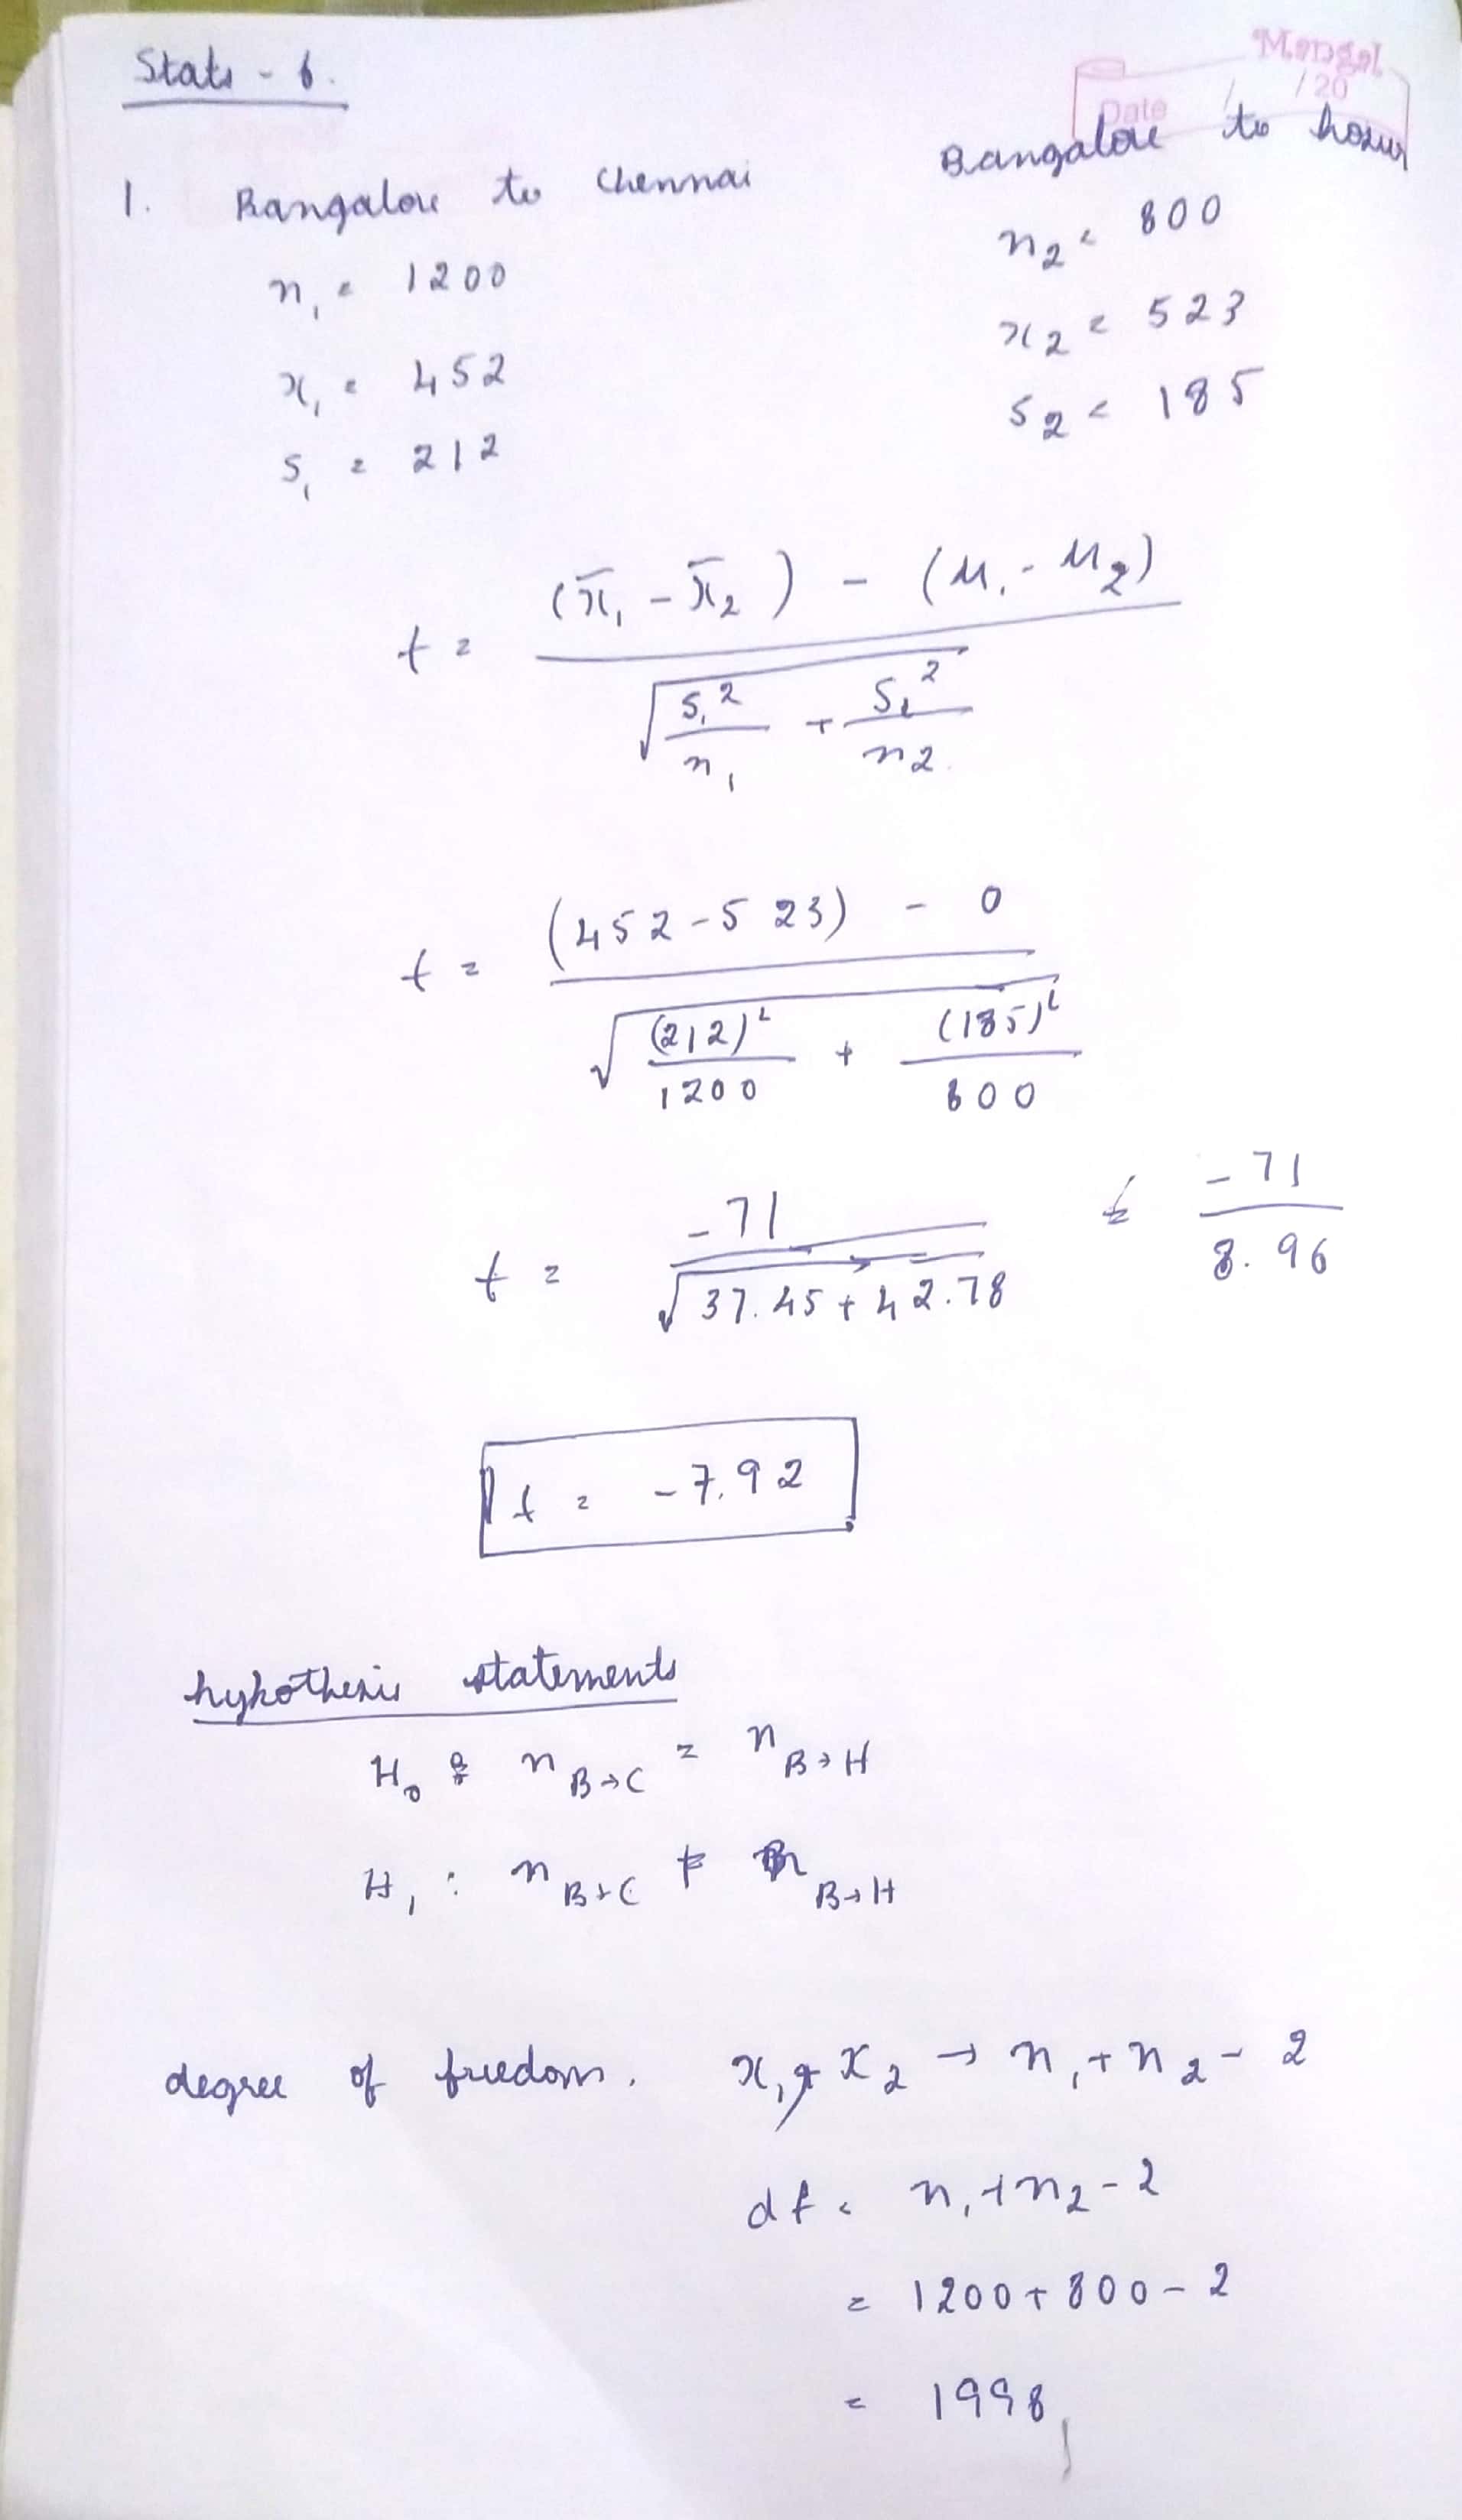 Stats - 6.
Mangal
Date / / 20
1. Bangalore to Chennai
n₁ = 1200
x₁ = 452
s₁ = 212
Bangalore to hosur
n₂ = 800
x₂ = 523
s₂ = 185
t = (x̄₁ - x̄₂) - (μ₁ - μ₂) / √(s₁²/n₁ + s₂²/n₂)
t = (452 - 523) - 0 / √((212)²/1200 + (185)²/800)
t = -71 / √(37.45 + 42.78) t = -71 / 8.96
t = -7.92
hypothesis statements
H₀ : n B→C = n B→H
H₁ : n B→C ≠ n B→H
degree of freedom. x₁, x₂ → n₁ + n₂ - 2
df = n₁ + n₂ - 2
= 1200 + 800 - 2
= 1998